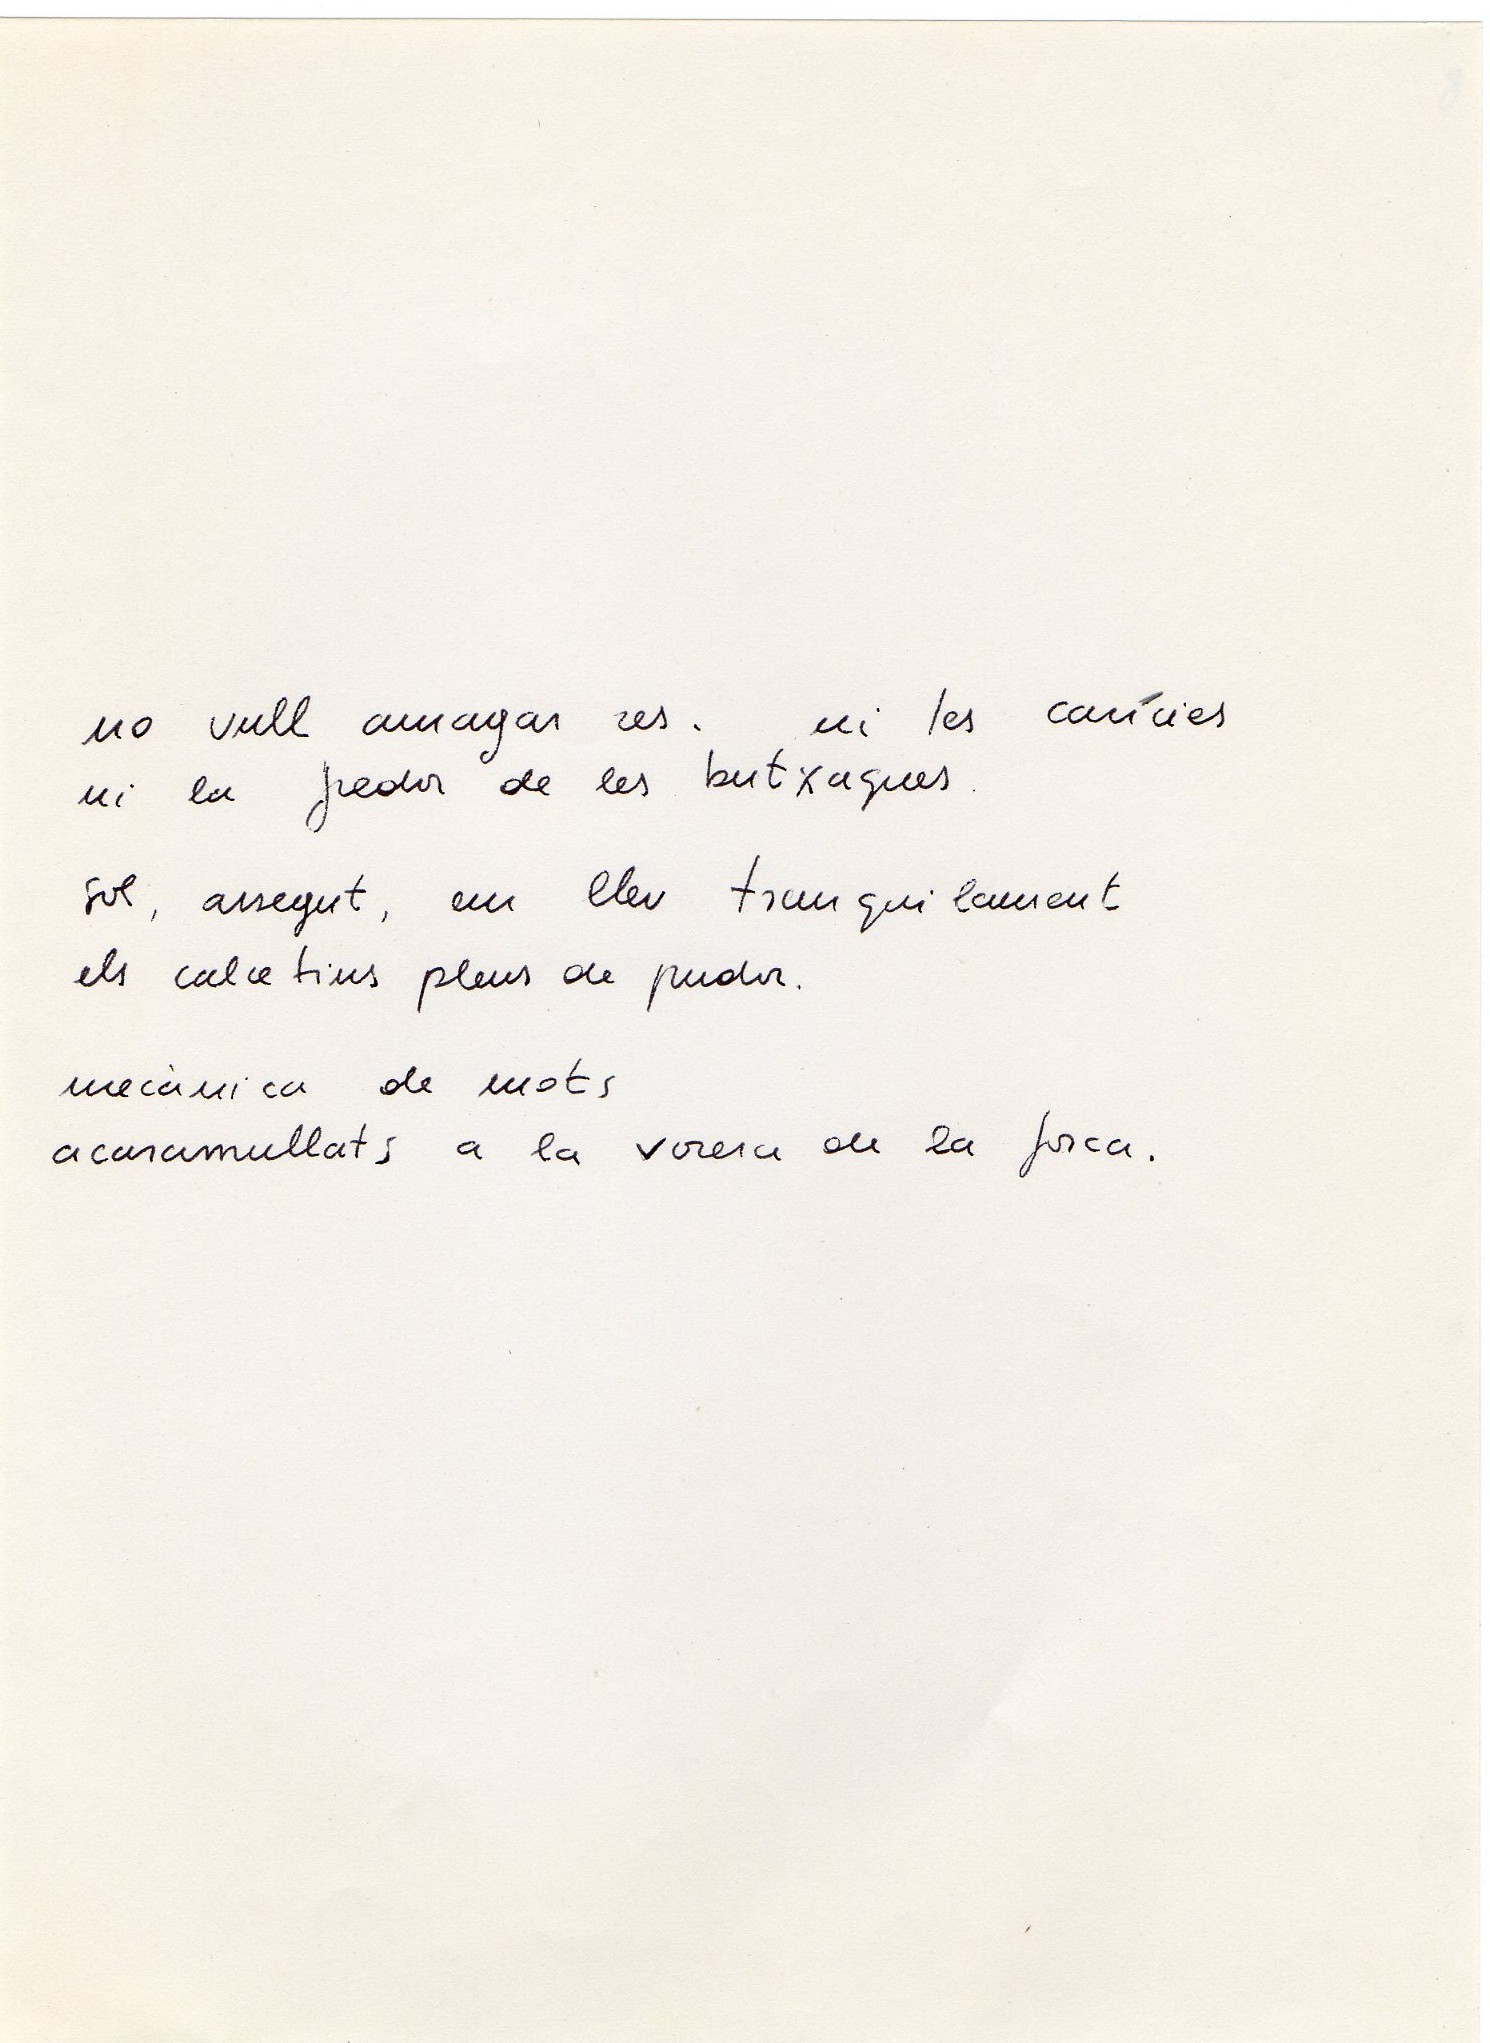 no vull amagar res. ni les carícies
ni la fredor de les butxaques.
sol, assegut, em llev tranquilament
els calcetins plens de pudor.
mecànica de mots
acaramullats a la vorera de la força.